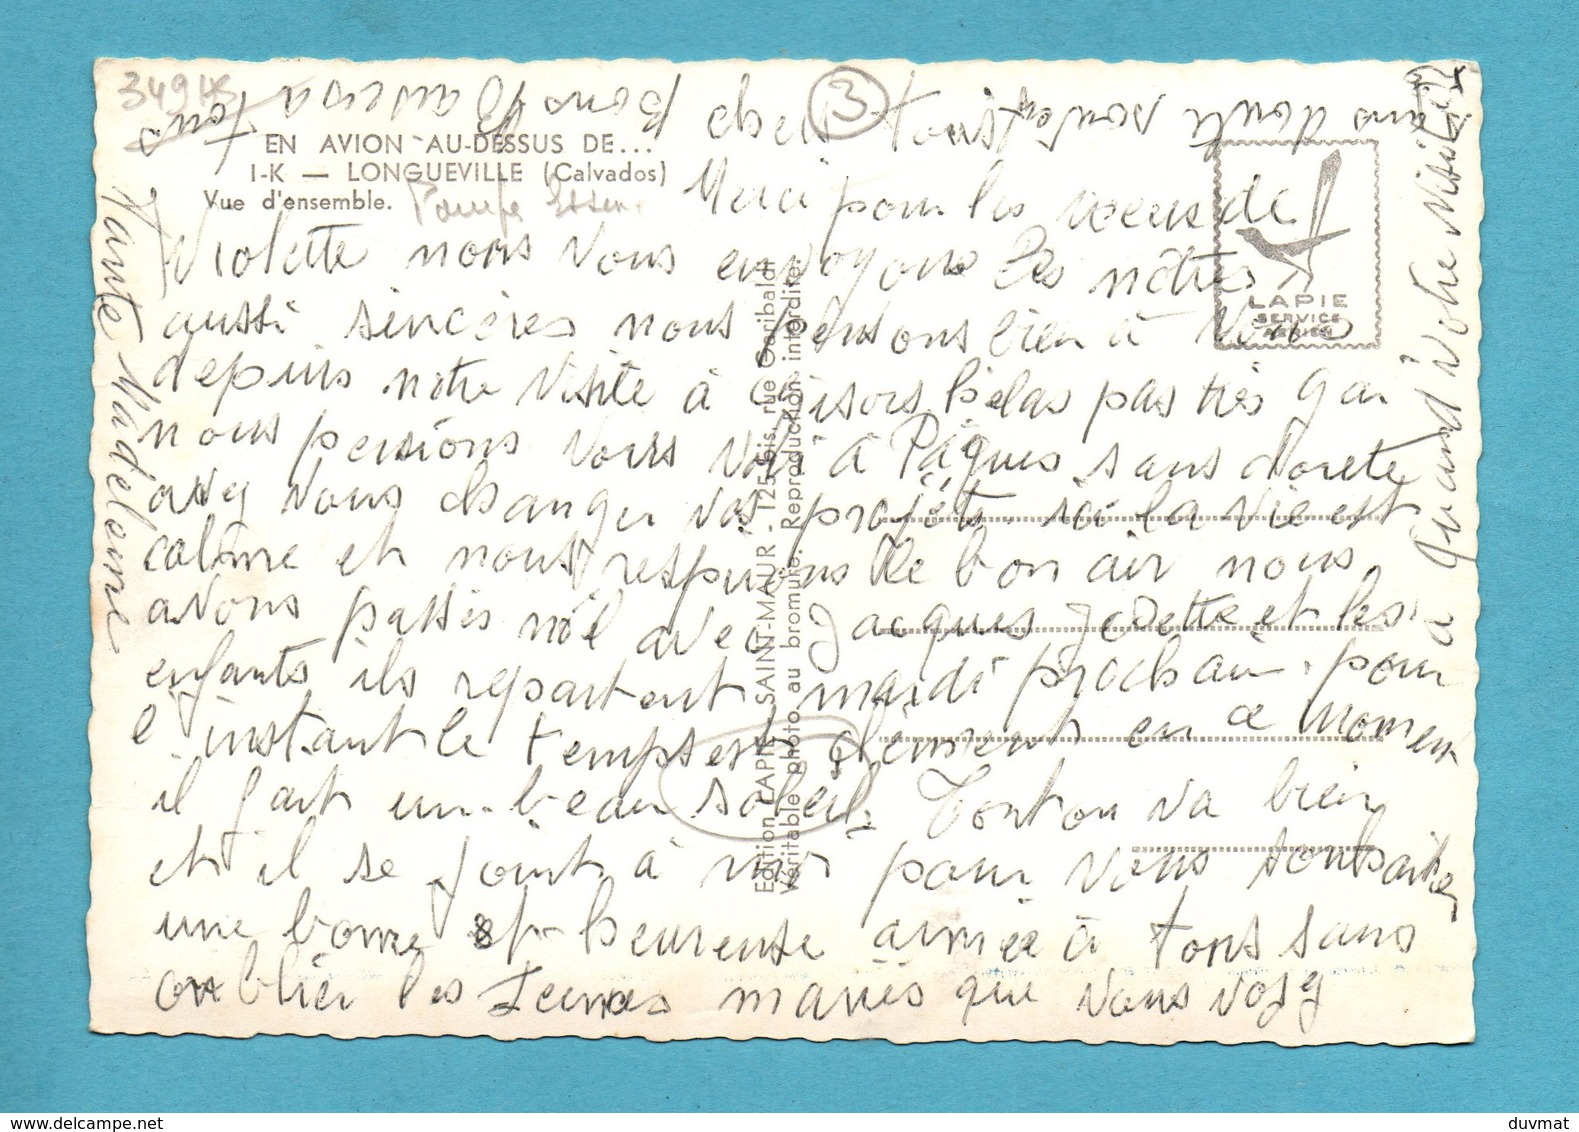 34945
EN AVION AU-DESSUS DE...
I-K — LONGUEVILLE (Calvados)
Vue d'ensemble.
Pompe Essence
3
LAPIE
SERVICE
AERIEN
Edition LAPIE SAINT-MAUR - 125 bis, rue Garibaldi
Véritable photo au bromure. Reproduction interdite.
Merci pour les voeus de
Violette nous vous envoyons les nôtres
aussi sincères nous pensons bien à vous
depuis notre visite à Gisors hélas pas très gai
nous pensions vous voir à Pâques sans doute
avez vous changer vos projets ici la vie est
calme et nous respirons le bon air nous
avons passés noël avec Jacques Josette et les
enfants ils repartent mardi prochain. pour
l'instant le temps est clément en ce moment
il fait un beau soleil. Tonton va bien
et il se joint à moi pour vous souhaiter
une bonne et heureuse année à tous sans
oublier les jeunes mariés que vous voyez
sans doute souvent
Bons Baisers à tous
Tante Madeleine
a quand votre visite ici